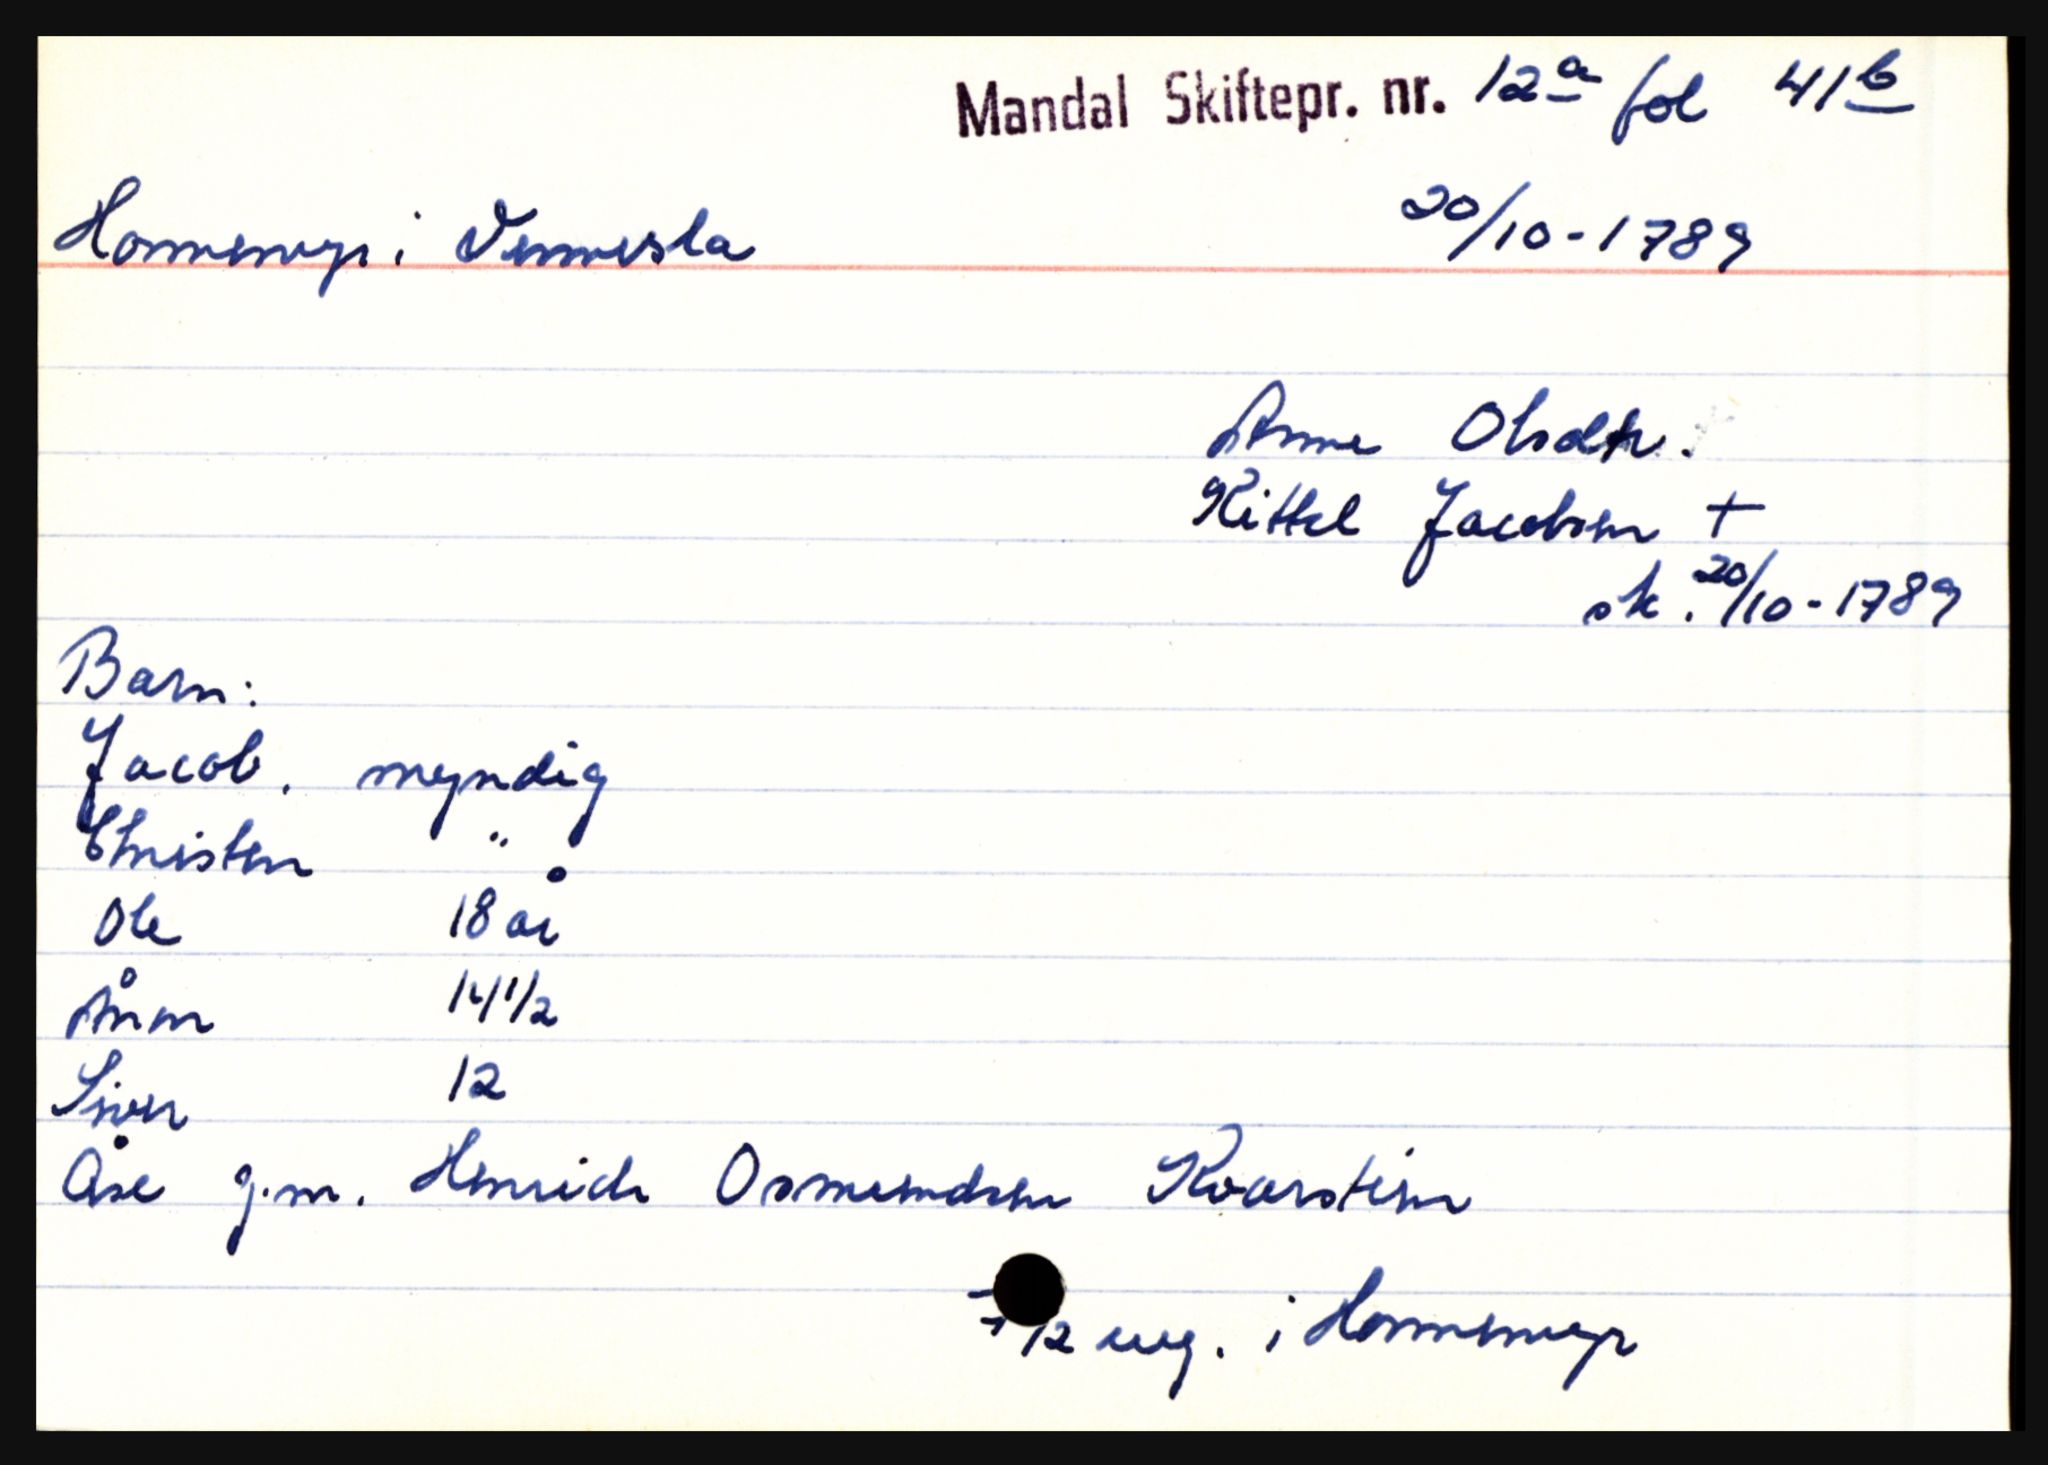 Mandal Skiftepr. nr. 12a fol 41b
Honnemyr i Vennesla 20/10-1789
Anne Olsdtr.
Kittel Jacobsen +
sk. 20/10-1789
Barn:
Jacob, myndig
Christen "
Ole 18 år
Ånen 14 1/2
Siver 12
Åse g.m. Henrich Osmundsen Kvarstein
/2 eng. i Honnemyr